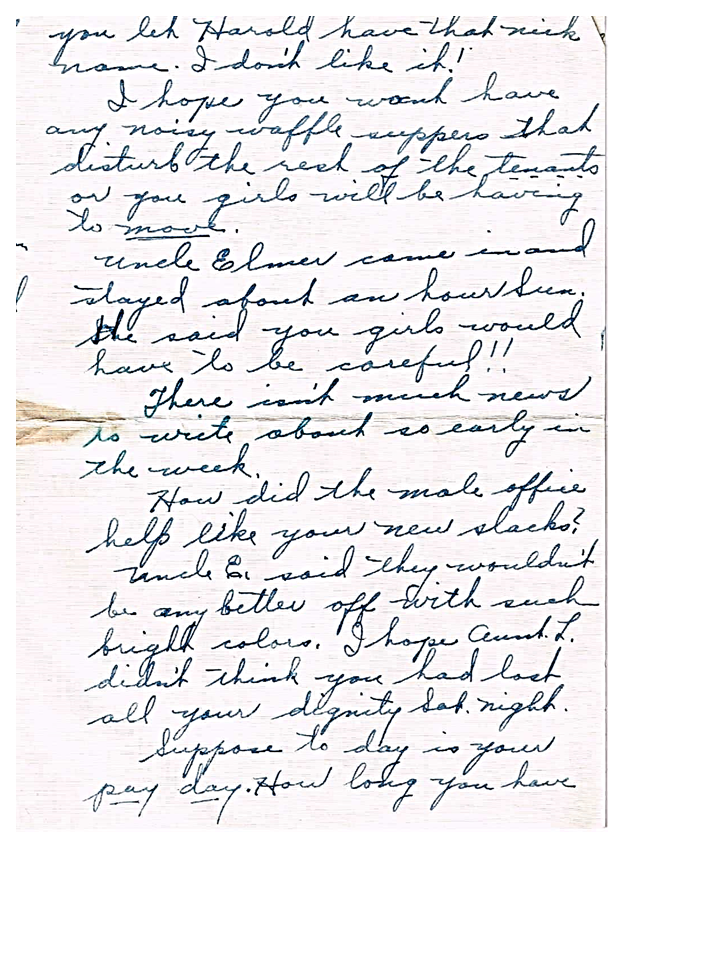 you let Harold have that nick
name. I don't like it!
I hope you wont have
any noisy waffle suppers that
disturb the rest of the tenants
or you girls will be having
to move.
Uncle Elmer came in and
stayed about an hour Sun.
She said you girls would
have to be careful!!
There isn't much news
to write about so early in
the week.
How did the male office
help like your new slacks?
Uncle E. said they wouldn't
be any better off with such
bright colors. I hope Aunt. L.
didn't think you had lost
all your dignity Sat. night.
Suppose to day is your
pay day. How long you have